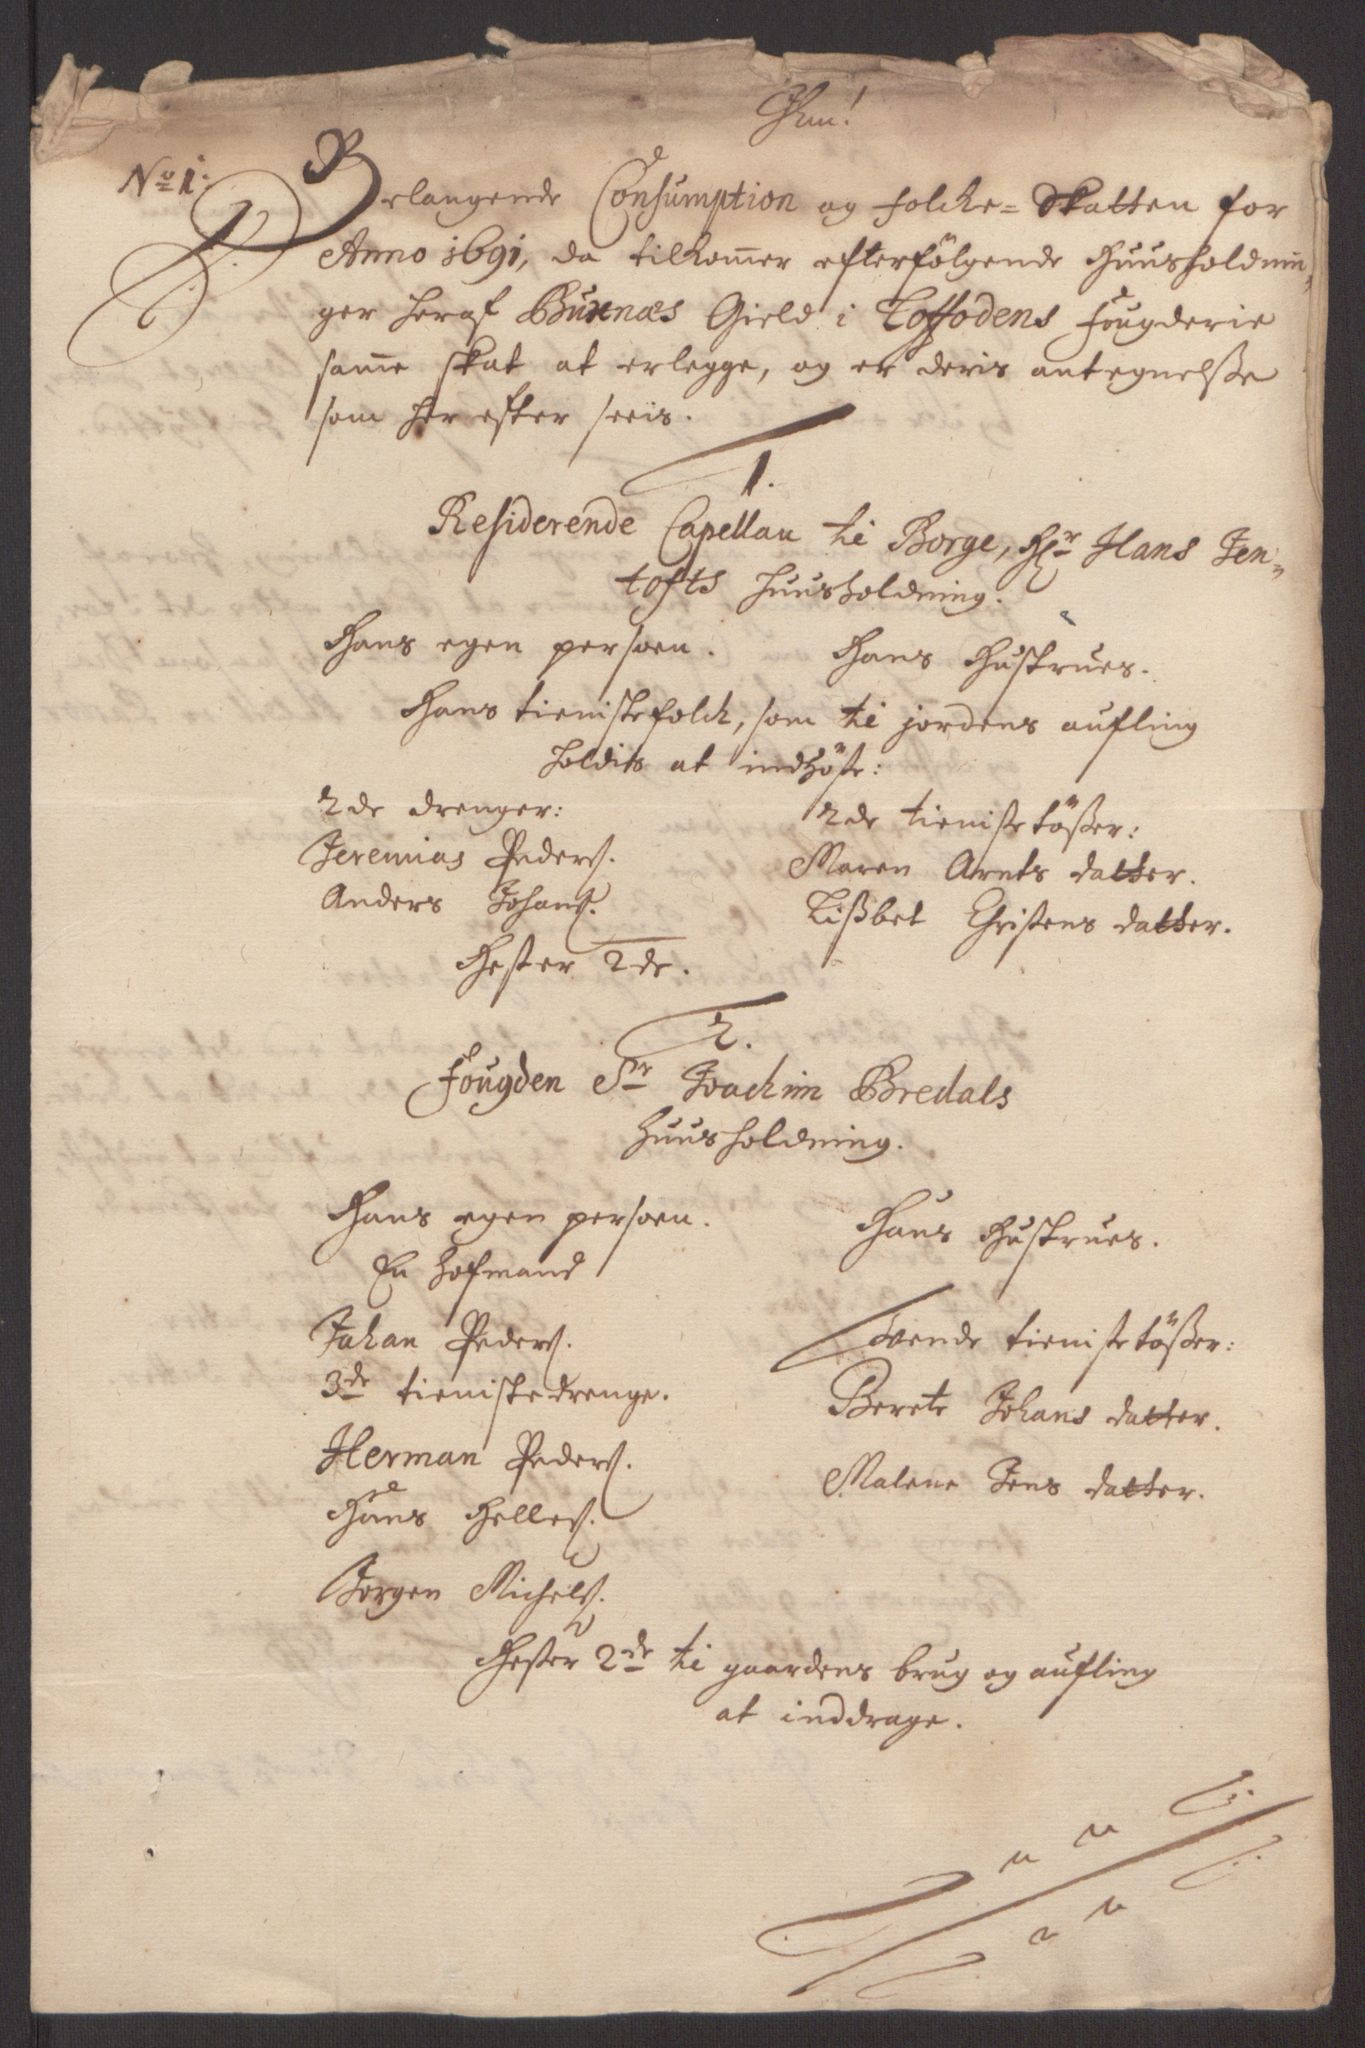 No 1:
Berlangende Consumption og folche= Skatten for
Anno 1691, da tilkommer efterfölgende Huusholdnin„
ger heraf Buxnæs Gield i Loffodens fougderie
samme skat at erlegge, og er deris antegnelsse
som her efter seeis.
1.
Residerende Capellan til Borge, Hr Hans Jen„
tofts huusholdning.
Hans egen persoen. Hans Hustrues.
Hans tienistefolck, som til jordens aufling
holdis at indhöste:
2de drenger: 2de tieniste tößer:
Jeremias Peders. Maren Arnts datter.
Anders Johans. Lißbet Christens datter.
Hester 2de.
2.
Fougden Sr Joachim Bredals
Huusholdning.
Hans egen persoen. Hans Hustrues.
En hofmand
Johan Peders. Tvende tieniste tößer:
3de tieniste drenge. Berete Johans datter.
Herman Peders. Malene Jens datter.
Hans Helles.
Jorgen Michels.
Hester 2de til gaardens brug og aufling
at inddrage.